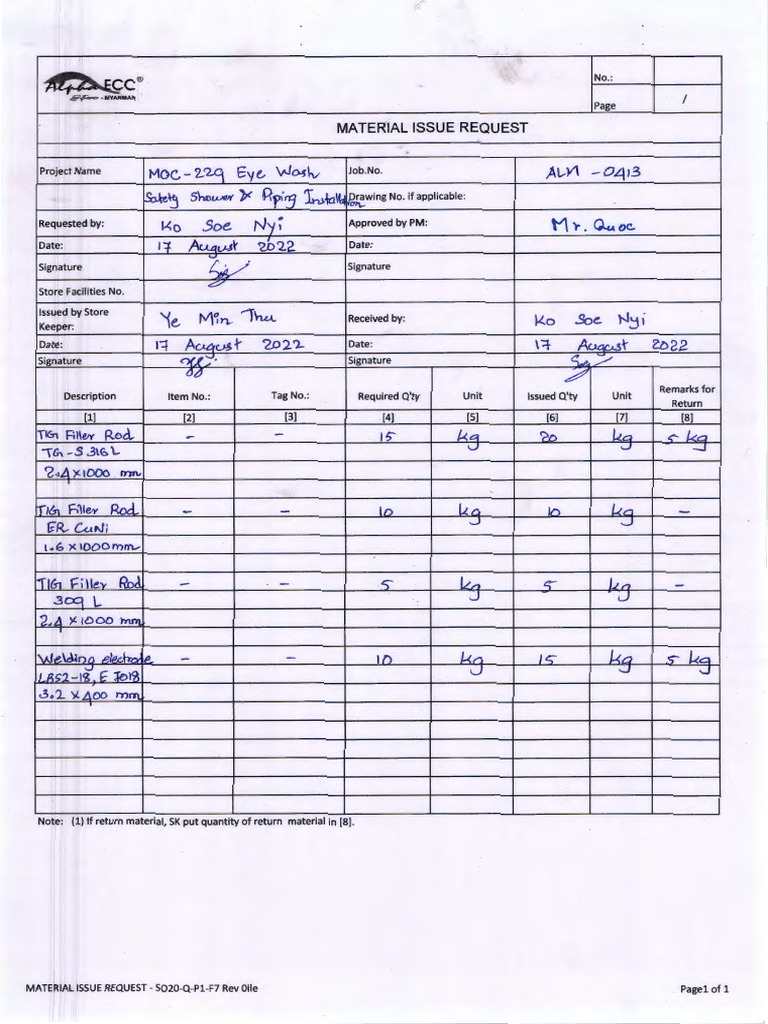 Alpha ECC®
- MYANMAR
No.:
Page /
MATERIAL ISSUE REQUEST
Project Name MOC-229 Eye Wash Job.No. ALM -0413
Safety Shower & Piping Installation Drawing No. if applicable:
Requested by: Ko Soe Nyi Approved by PM: Mr. Quoc
Date: 17 August 2022 Date:
Signature Signature
Store Facilities No.
Issued by Store Keeper: Ye Min Thu Received by: Ko Soe Nyi
Date: 17 August 2022 Date: 17 August 2022
Signature Signature
Description Item No.: Tag No.: Required Q'ty Unit Issued Q'ty Unit Remarks for Return
[1] [2] [3] [4] [5] [6] [7] [8]
TIG Filler Rod - - 15 kg 20 kg 5 kg
TG-S 316 L
2.4 x 1000 mm
TIG Filler Rod - - 10 kg 10 kg -
ER CuNi
1.6 x 1000 mm
TIG Filler Rod - - 5 kg 5 kg -
309 L
2.4 x 1000 mm
Welding electrode - - 10 kg 15 kg 5 kg
LB52-18, E 7018
3.2 x 400 mm
Note: (1) If return material, SK put quantity of return material in [8].
MATERIAL ISSUE REQUEST - SO20-Q-P1-F7 Rev 0ile Page1 of 1